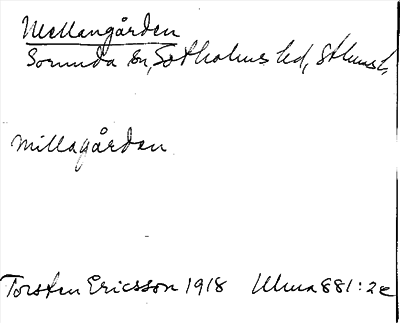 Mellangården
Sorunda sn, Sotholms hd, Sthms l.
millagårdan
Torsten Ericsson 1918 Ulma 881:2c